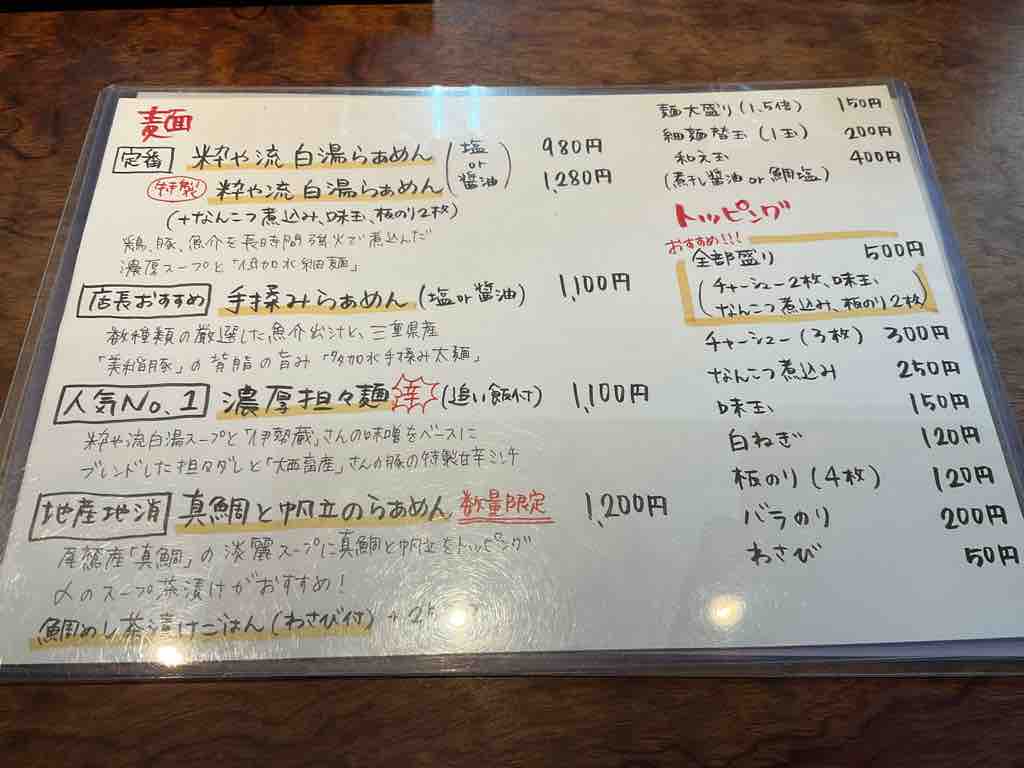 麺
定番 粋や流 白湯らぁめん (塩 or 醤油) 980円
特製 粋や流 白湯らぁめん 1,280円
(+なんこつ煮込み、味玉、板のり2枚)
鶏、豚、魚介を長時間強火で煮込んだ
濃厚スープと「低加水細麺」
店長おすすめ 手揉みらぁめん (塩or醤油) 1,100円
数種類の厳選した魚介出汁と、三重県産
「美稲豚」の背脂の旨み「多加水手揉み太麺」
人気No.1 濃厚担々麺 辛 (追い飯付) 1,100円
粋や流白湯スープと「伊勢蔵」さんの味噌をベースに
ブレンドした担々ダレと「大西畜産」さんの豚の特製甘辛ミンチ
地産地消 真鯛と帆立のらぁめん 数量限定 1,200円
尾鷲産「真鯛」の淡麗スープに真鯛と帆立をトッピング
〆のスープ茶漬けがおすすめ!
鯛めし茶漬けごはん(わさび付)
麺大盛り(1.5倍) 150円
細麺替玉(1玉) 200円
和え玉 400円
(煮干し醤油 or 鯛塩)
トッピング
おすすめ!!!
全部盛り 500円
(チャーシュー2枚、味玉、
なんこつ煮込み、板のり2枚)
チャーシュー(3枚) 300円
なんこつ煮込み 250円
味玉 150円
白ねぎ 120円
板のり(4枚) 120円
バラのり 200円
わさび 50円